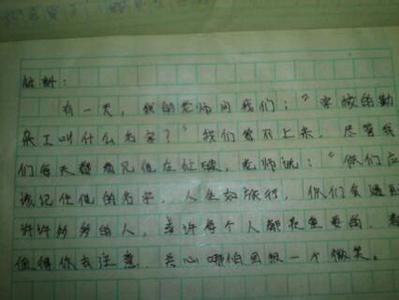 材料:
有一天，我的老师问我们："学校的勤
杂工叫什么名字？"我们答不上来，尽管我
们每天都看见他在忙碌，老师说："你们应
该记住他的名字，人生如旅行，你们会遇到
许许多多的人，或许每个人都是重要的，都
值得你去注意，关心哪怕回报一个微笑。